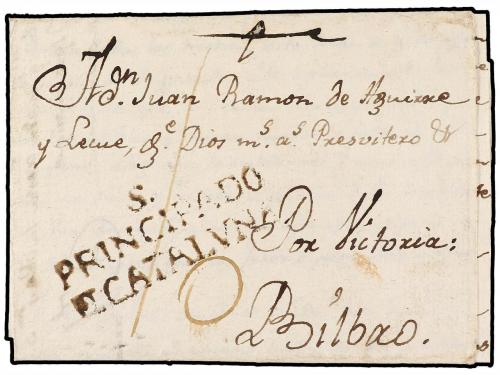 A dn Juan Ramon de Aguirre
y Lecue, qe Dios ms as Presvitero &
S.
PRINCIPADO
E CATALVNA
10
Por Victoria:
Bilbao.